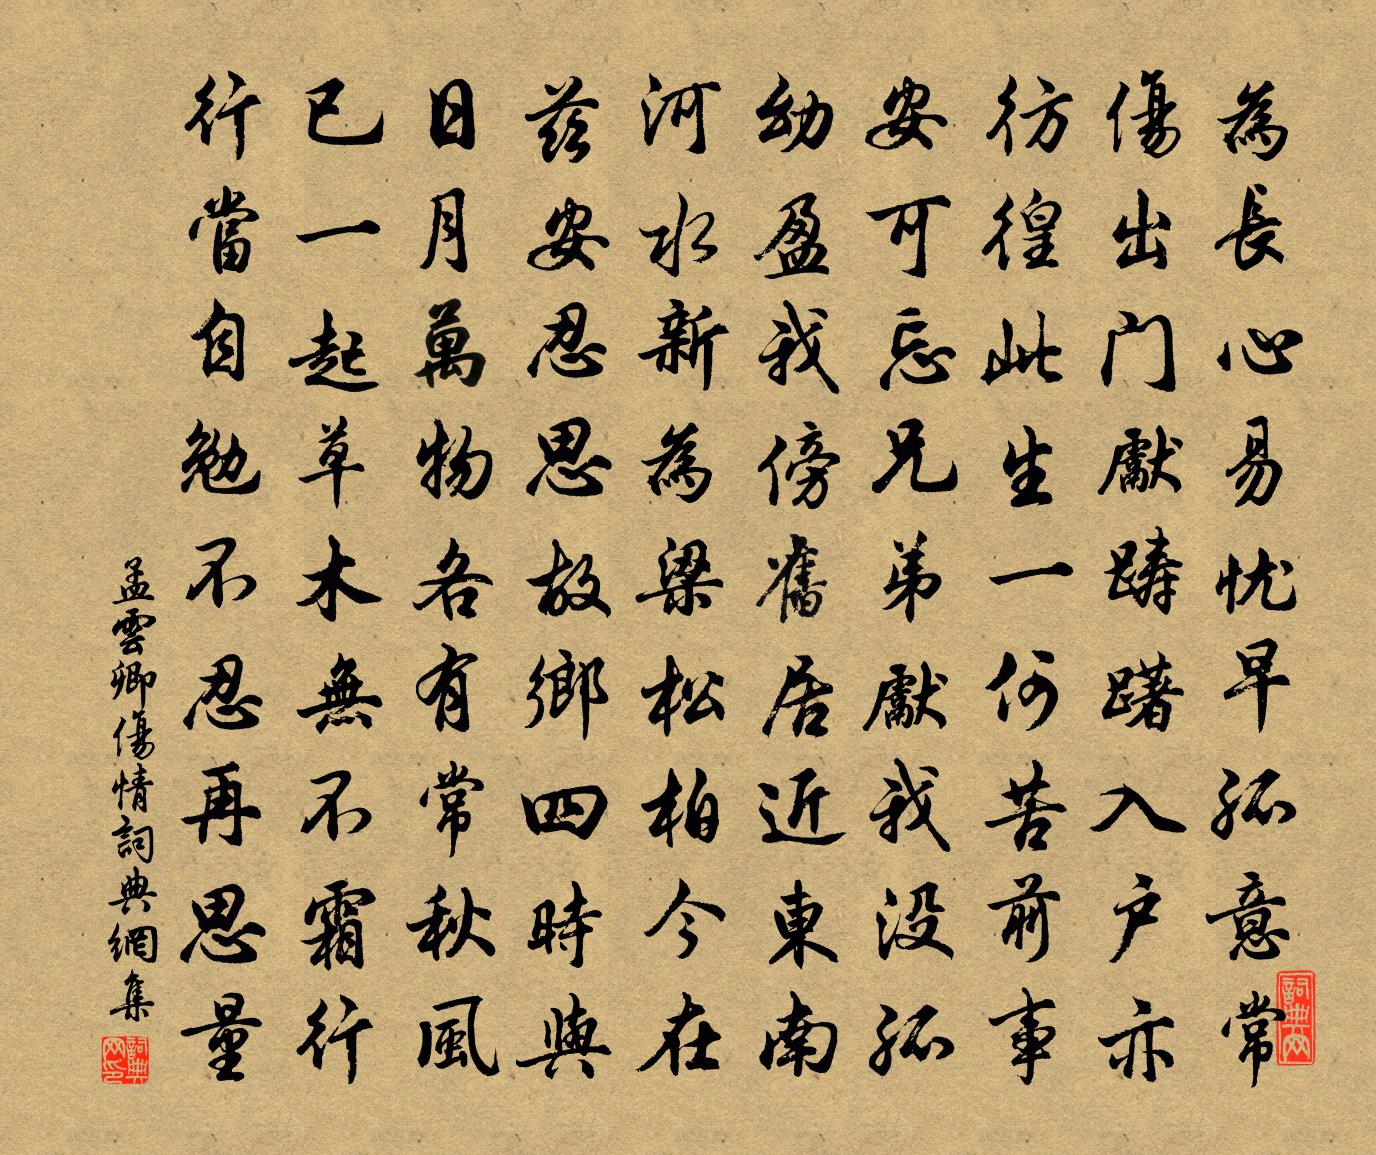 為長心易忧早孤意常
傷出门獻踌躇入户亦
彷徨此生一何苦前事
安可忘兄弟獻我没孤
幼盈我傍舊居近東南
河水新為梁松柏今在
兹安忍思故鄉四時與
日月萬物各有常秋風
已一起草木無不霜行
行當自勉不忍再思量
孟雲卿傷情詞典網集
詞典网
詞典网印